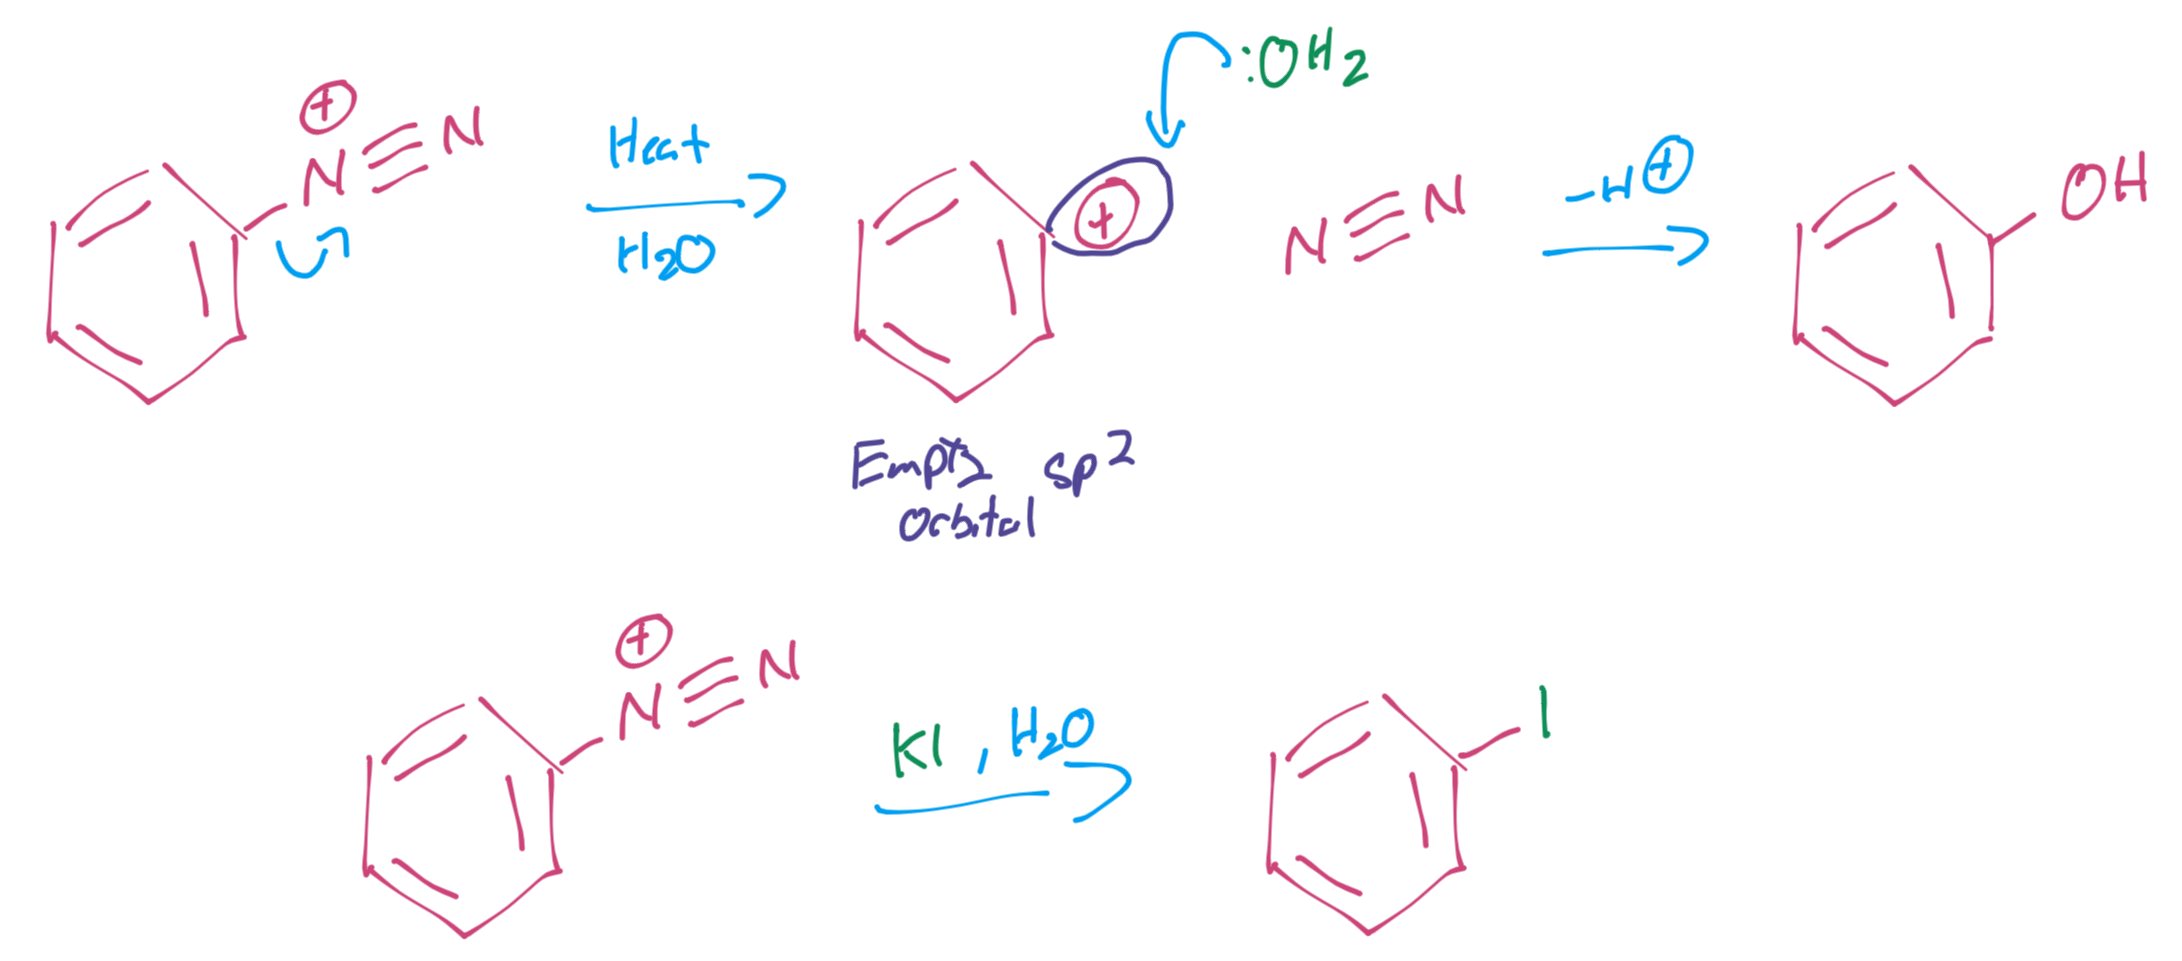 ⊕
N≡N
Heat
H2O
⊕
:OH2
N≡N
-H⊕
OH
Empty sp2
orbital
⊕
N≡N
KI, H2O
I